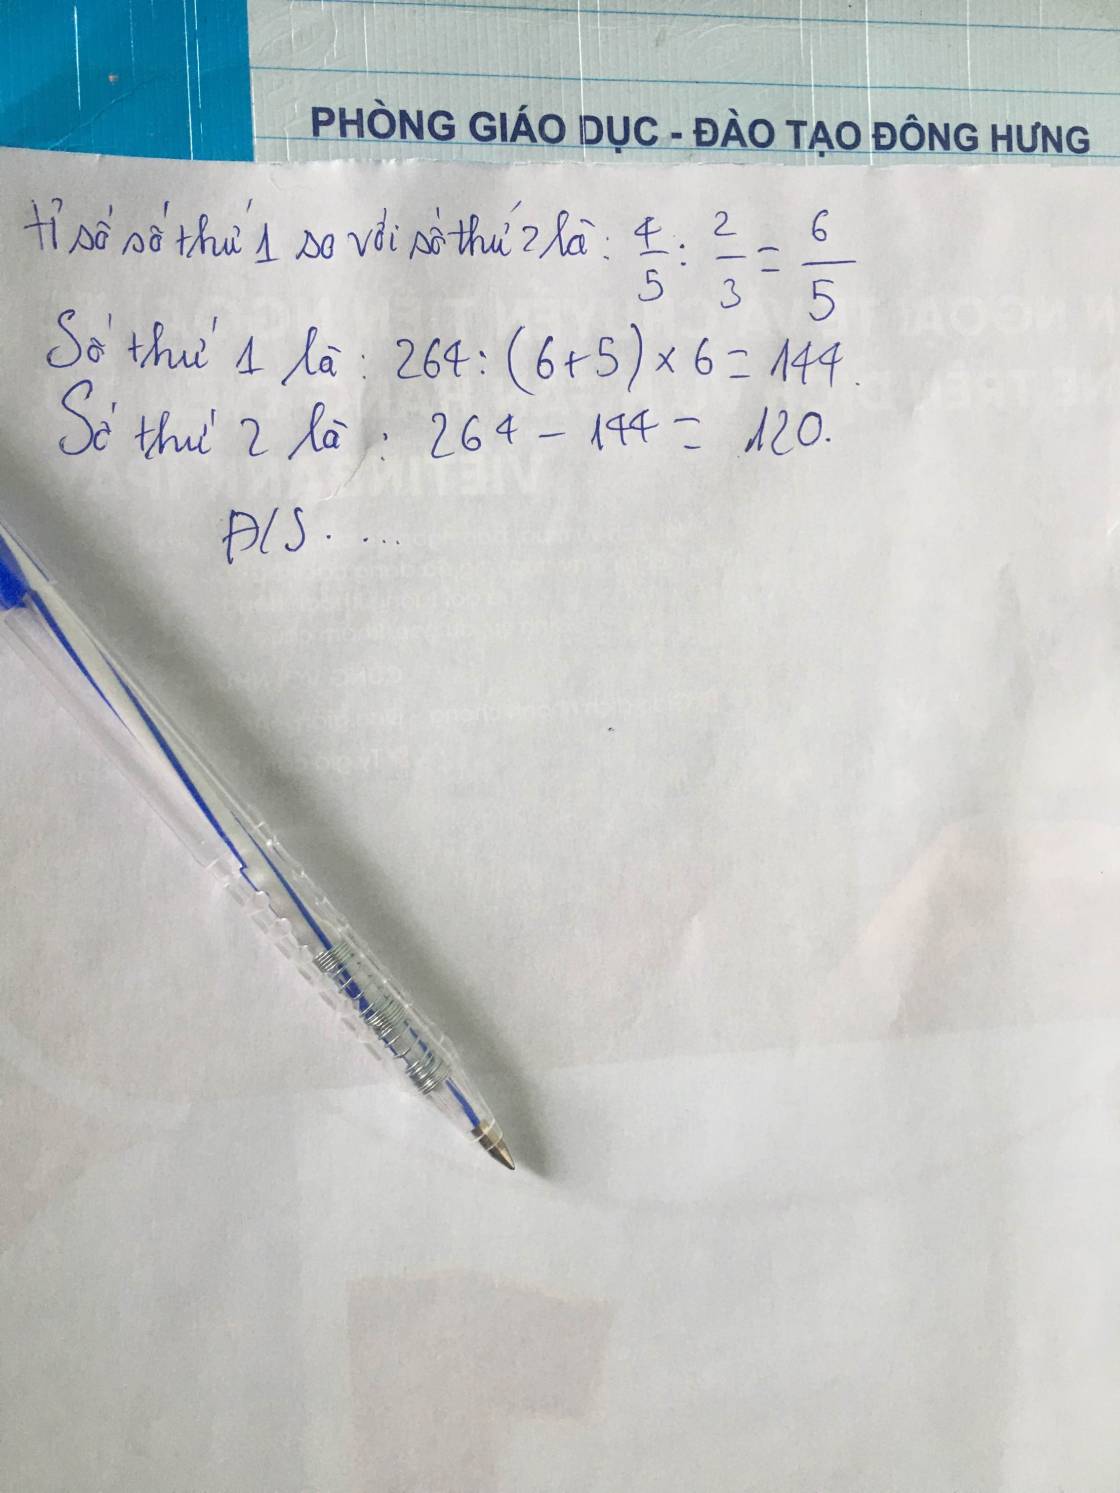 PHÒNG GIÁO DỤC - ĐÀO TẠO ĐÔNG HƯNG
Tỉ số số thứ 1 so với số thứ 2 là: 4/5 : 2/3 = 6/5
Số thứ 1 là: 264: (6+5) × 6 = 144.
Số thứ 2 là: 264 - 144 = 120.
Đ/S. ...